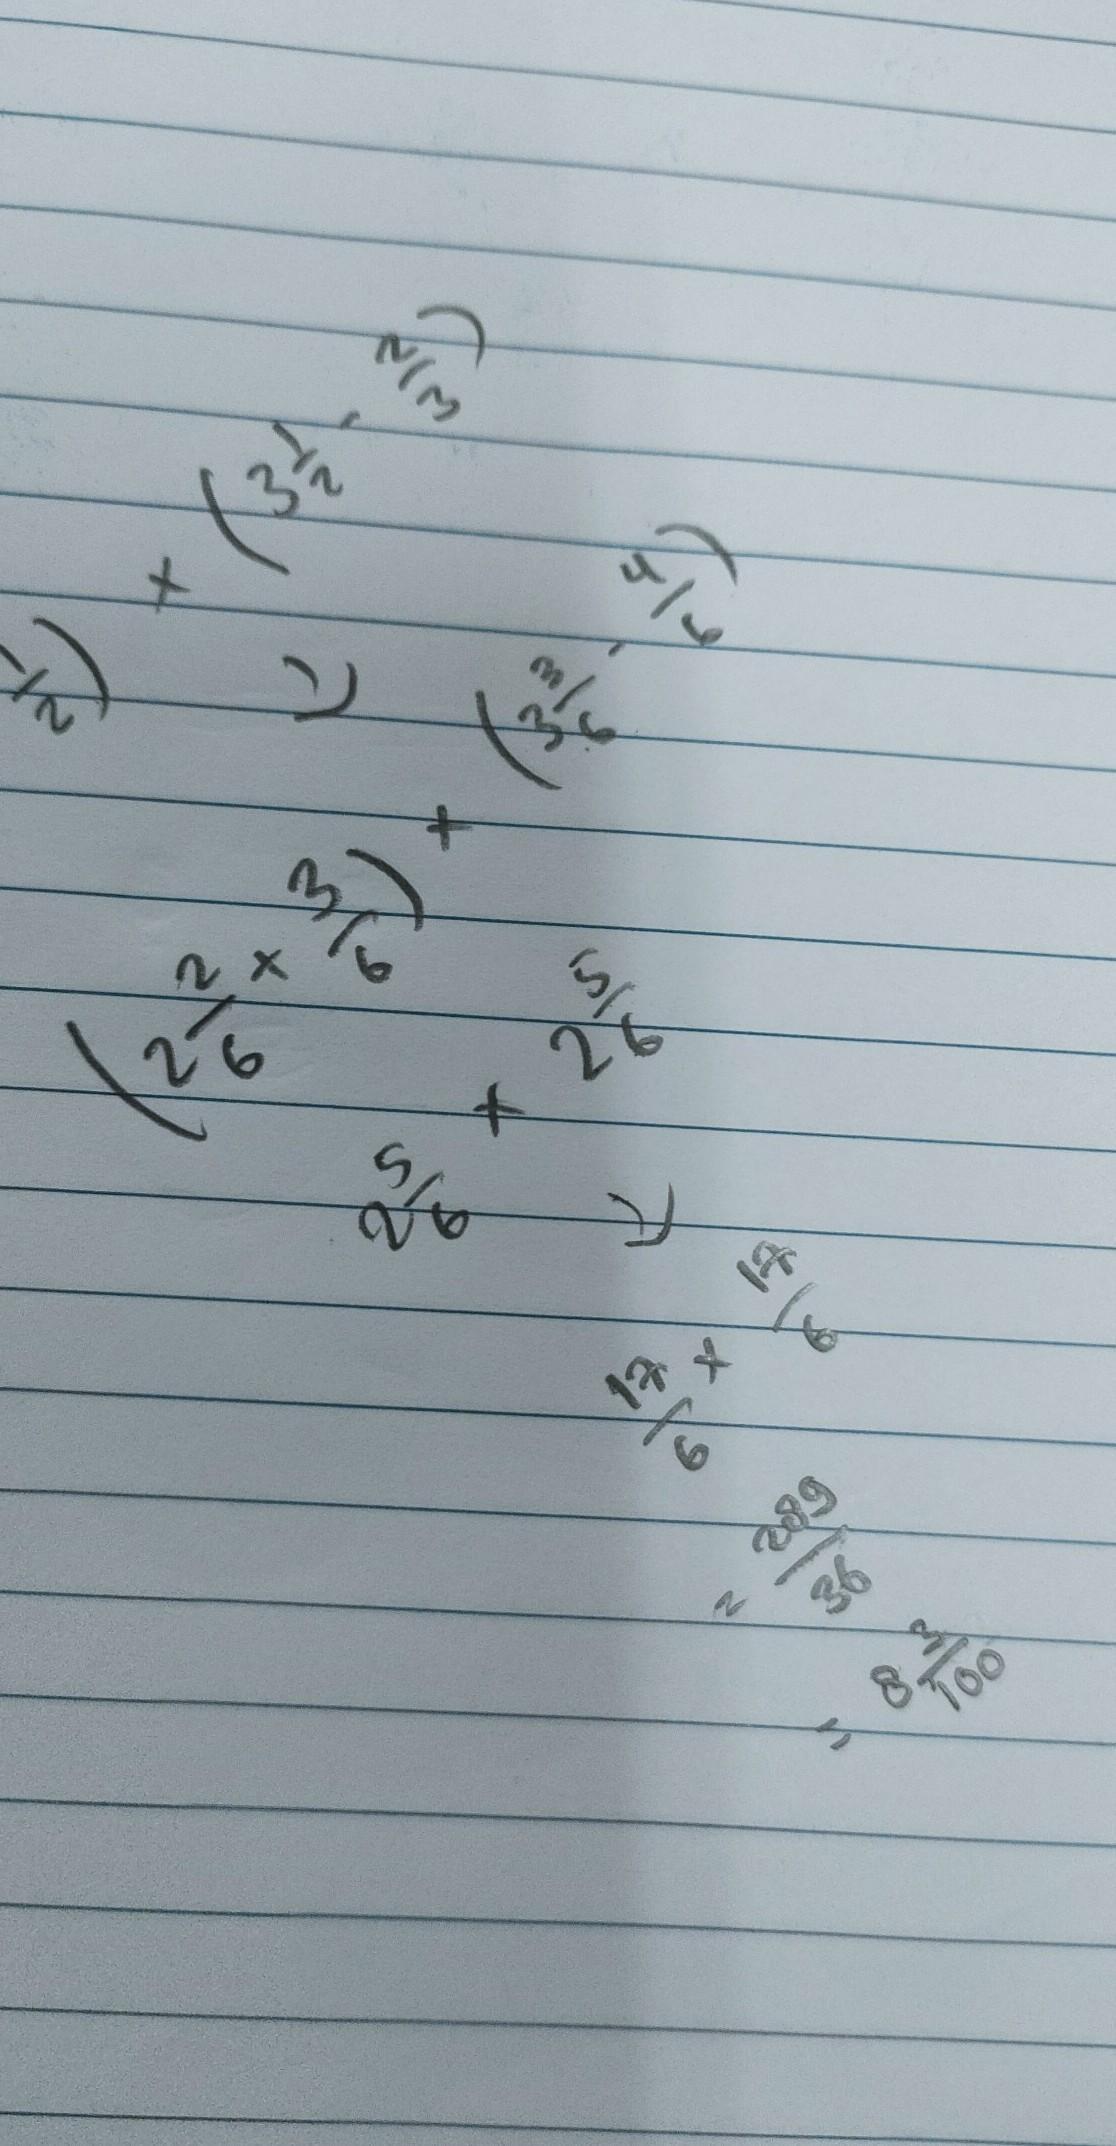 1/2) × (3 1/2 - 2/3)
=> (2 2/6 × 3/6) + (3 3/6 - 4/6)
=> 2 5/6 + 2 5/6
17/6 × 17/6
= 289/36
= 8 3/100